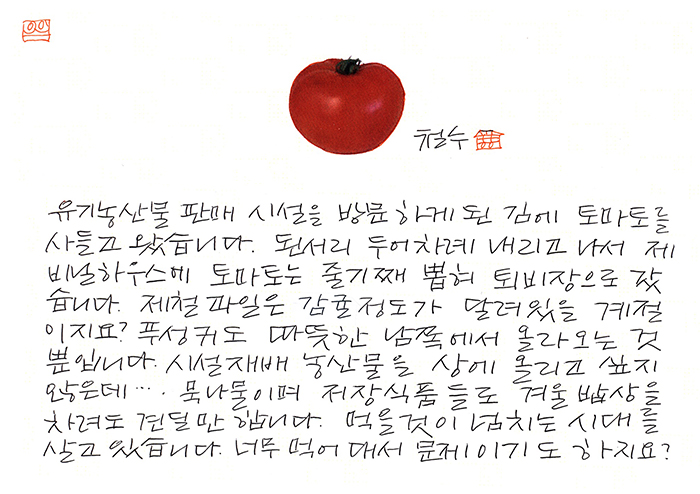 철수
유기농산물 판매 시설을 방문하게 된 김에 토마토를
사들고 왔습니다. 된서리 두어차례 내리고 나서 제
비닐하우스에 토마토는 줄기째 뽑혀 퇴비장으로 갔
습니다. 제철과일은 감귤정도가 달려있을 계절
이지요? 푸성귀도 따뜻한 남쪽에서 올라오는 것
뿐입니다. 시설재배 농산물을 상에 올리고 싶지
않은데…. 묵나물이며 저장식품들로 겨울 밥상을
차려도 견딜만 합니다. 먹을것이 넘치는 시대를
살고 있습니다. 너무 먹어대서 문제이기도 하지요?